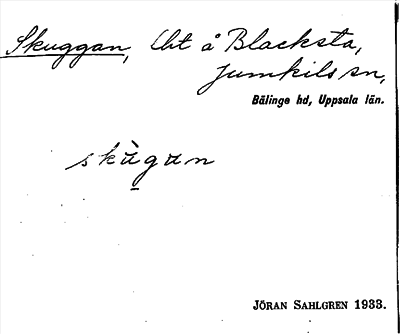 Skuggan, Lht å Blacksta,
Jumkils sn,
Bälinge hd, Uppsala län.
skùgan
JÖRAN SAHLGREN 1933.